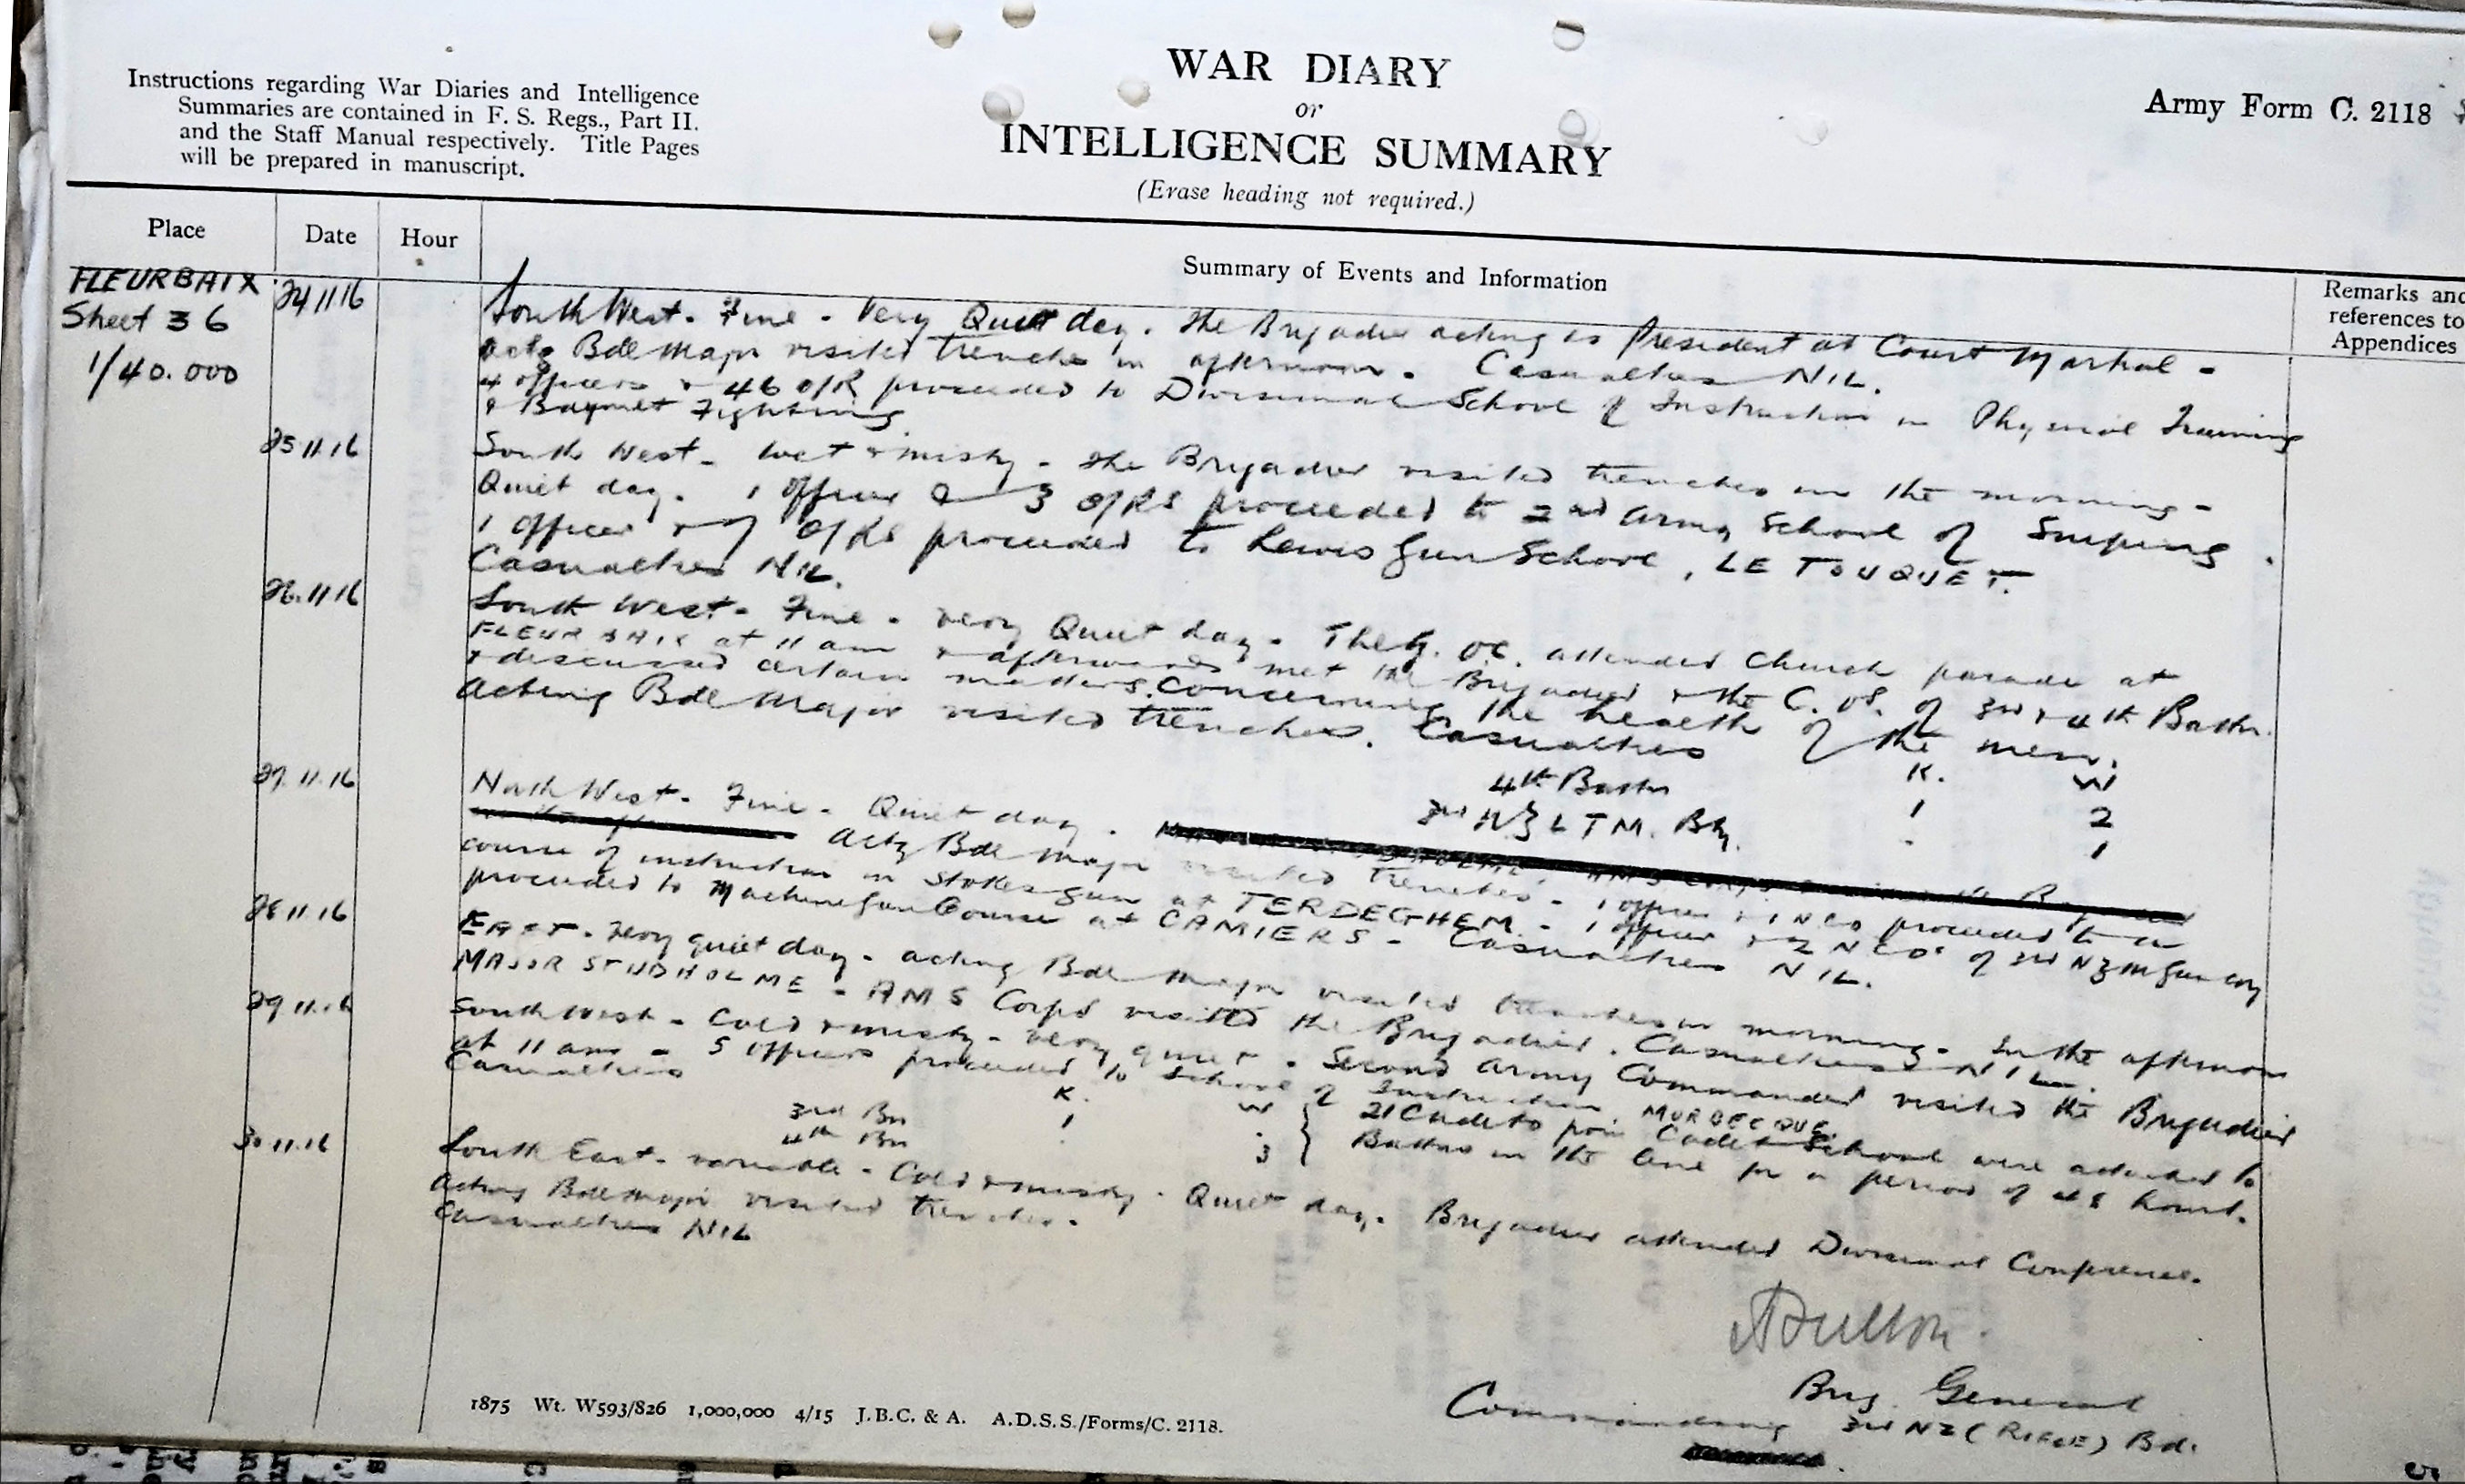 Instructions regarding War Diaries and Intelligence
Summaries are contained in F. S. Regs., Part II.
and the Staff Manual respectively. Title Pages
will be prepared in manuscript.
WAR DIARY
or
INTELLIGENCE SUMMARY
(Erase heading not required.)
Army Form C. 2118
Place
Date
Hour
Summary of Events and Information
Remarks and
references to
Appendices
FLEURBAIX
Sheet 36
1/40.000
24 11 16
South West. Fine. Very Quiet day. The Brigadier acting as President at Court Martial -
Actg Bde Major visited trenches in afternoon. Casualties NIL.
4 officers & 46 O/R proceeded to Divisional School of Instruction in Physical Training
& Bayonet Fighting
25 11.16
South West. Wet & misty. The Brigadier visited trenches in the morning -
Quiet day. 1 officer & 3 O/RS proceeded to 2nd Army School of Sniping.
1 officer & 7 O/Rs proceeded to Lewis Gun School, LE TOUQUET.
Casualties NIL.
26.11 16
South West. Fine. very Quiet day. The G.O.C. attended Church parade at
FLEURBAIX at 11 am & afterwards met the Brigadier & the C.O's. of 3rd & 4th Battn.
& discussed certain matters concerning the health of the men.
Acting Bde Major visited trenches. Casualties
K. W
4th Battn 1 2
3rd NZ L T M. Bty. . 1
27.11.16
North West. Fine. Quiet day.
Actg Bde Major visited trenches. 1 officer & 1 NCO proceeded to a
course of instruction in Stokes Gun at TERDEGHEM. 1 officer & 2 NCOs of 3rd NZ M Gun Coy
proceeded to Machine Gun Course at CAMIERS. Casualties NIL.
28 11.16
EAST. Very quiet day. Acting Bde Major visited trenches in morning. In the afternoon
MAJOR STUDHOLME - AMS Corps visited the Brigadier. Casualties NIL.
29 11.16
South West. Cold & misty. Very quiet. Second Army Commander visited the Brigadier
at 11 am - 5 officers proceeded to School of Instruction, MORBECQUE.
Casualties K. W
3rd Bn 1 .
4th Bn . 3
} 21 Cadets from Cadet School were attached to
Battns in the line for a period of 48 hours.
30 11.16
South East. variable. Cold & misty. Quiet day. Brigadier attended Divisional Conference.
Acting Bde Major visited trenches.
Casualties NIL
Fulton
Brig. General
Commanding 3rd NZ (RIFLE) Bde.
1875 Wt. W593/826 1,000,000 4/15 J.B.C. & A. A.D.S.S./Forms/C. 2118.